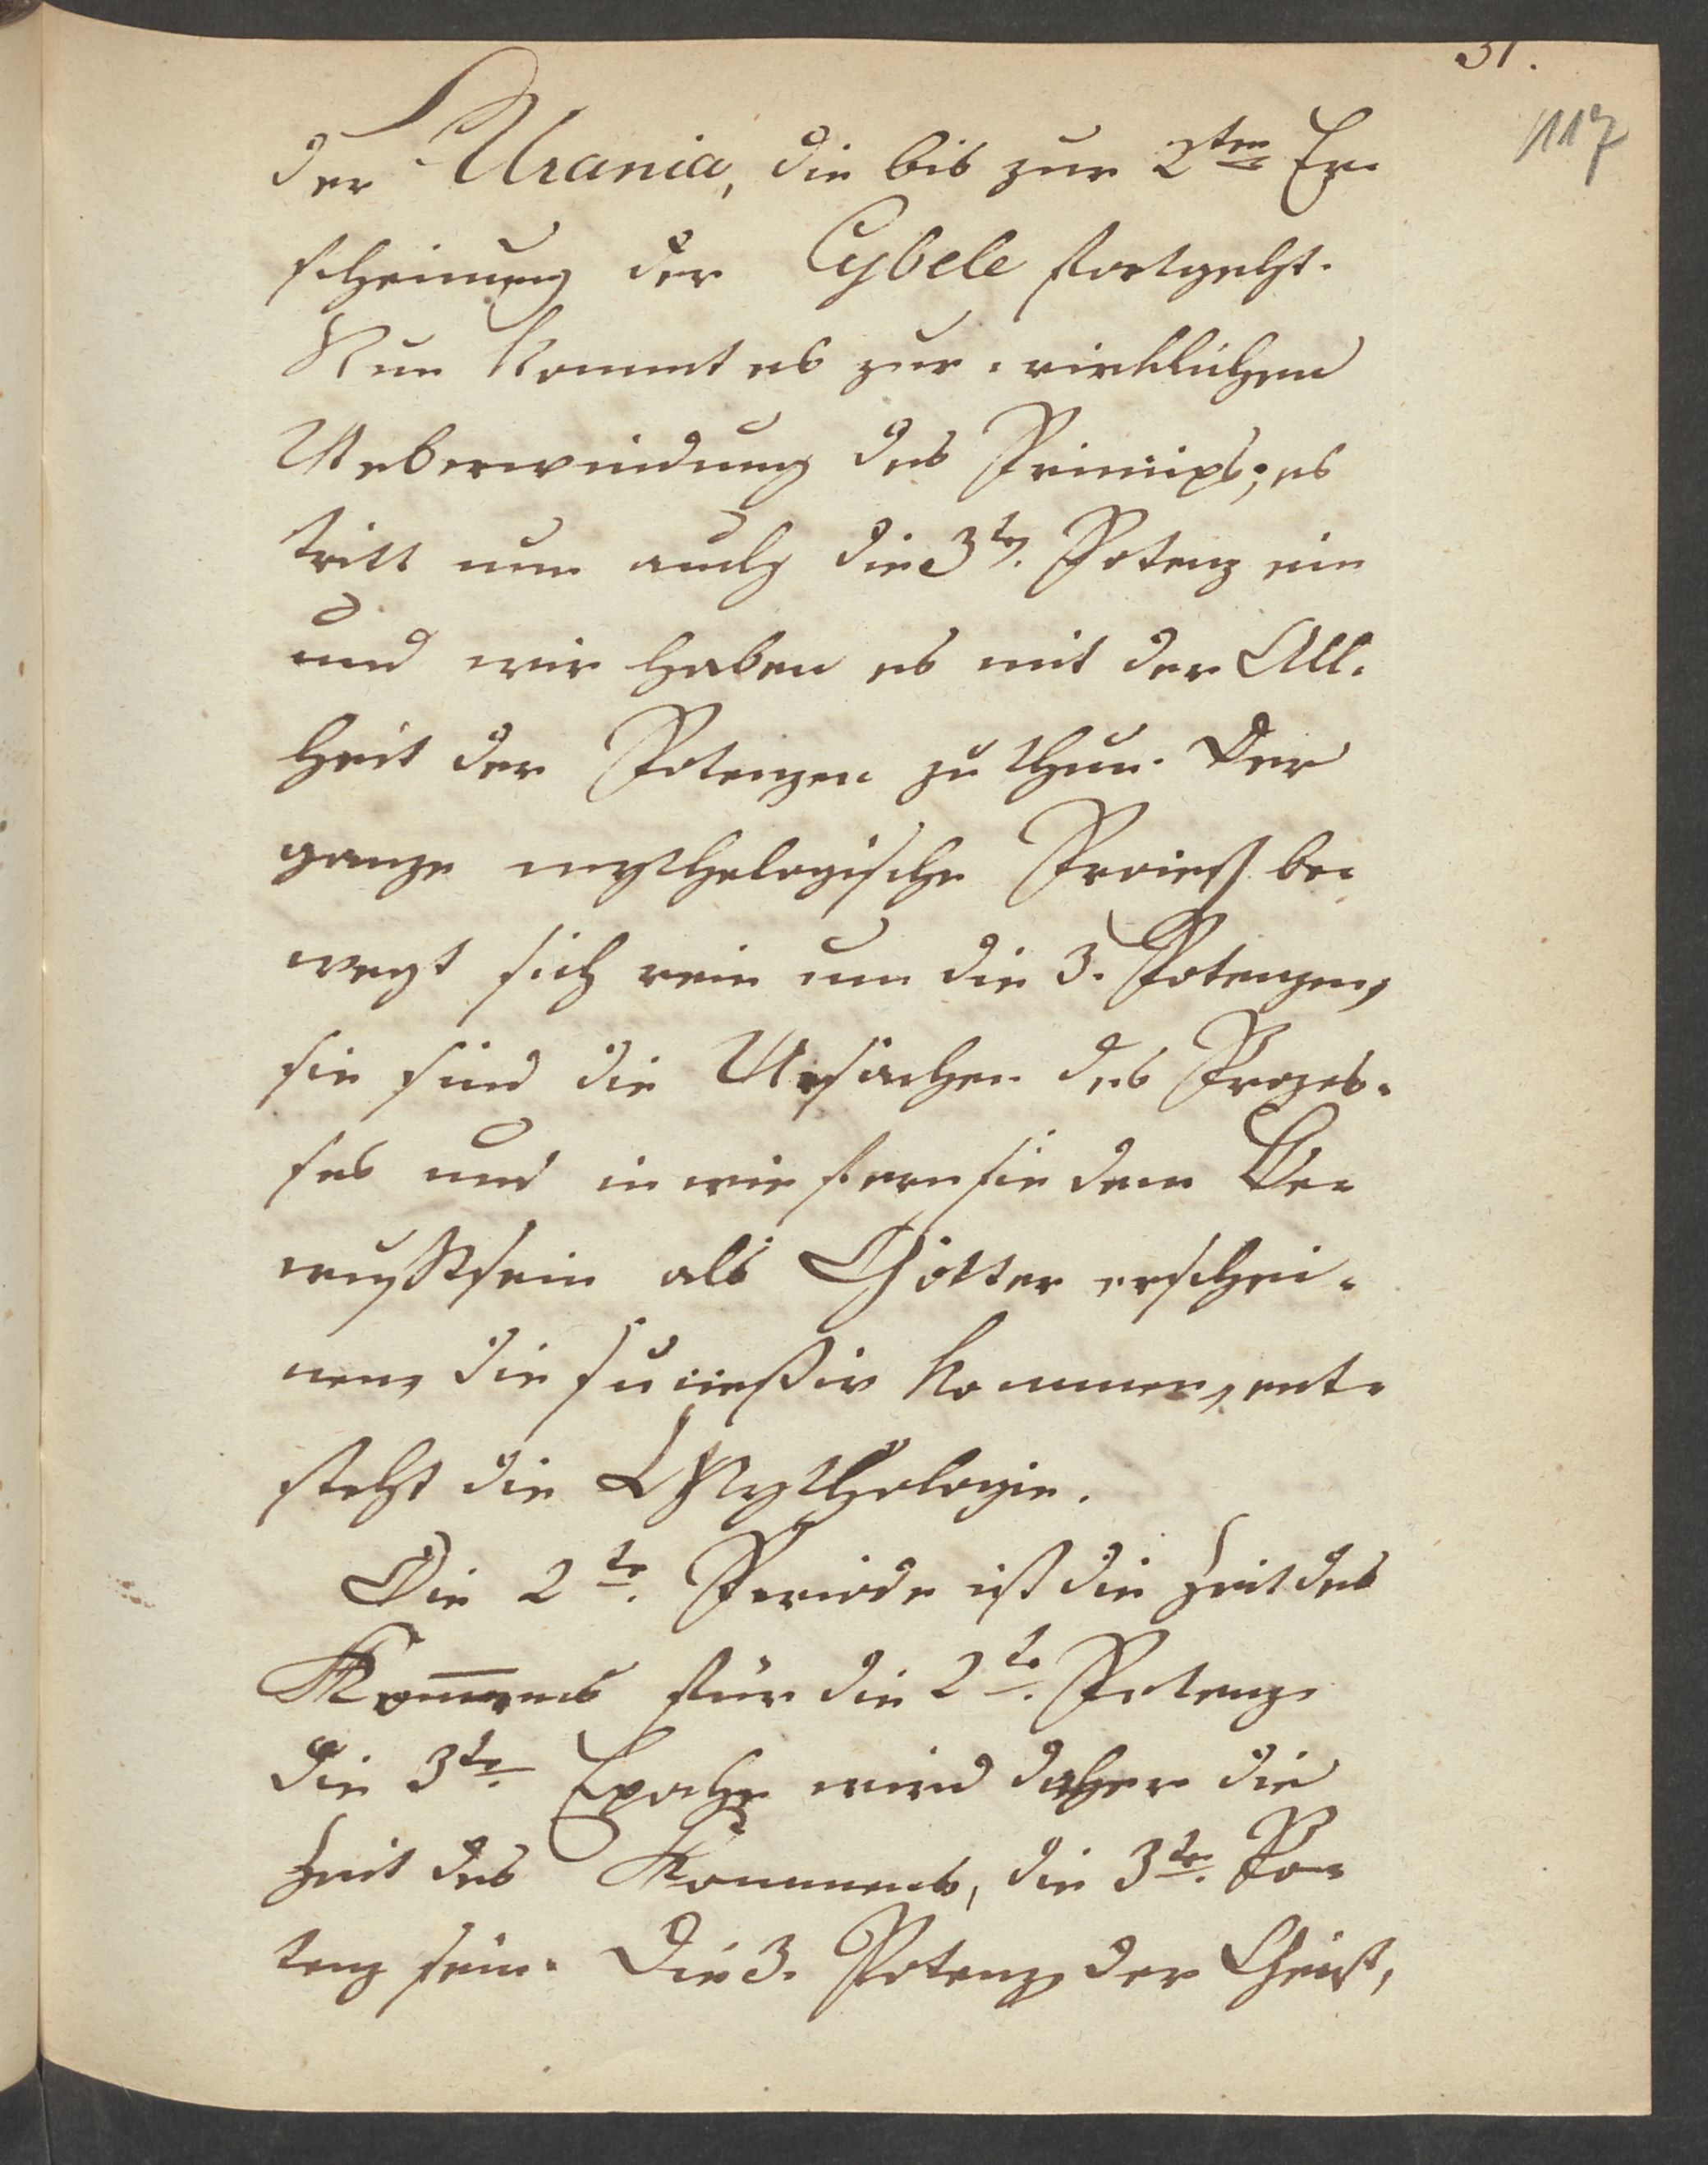 31.
117
der Urania, die bis zur 2ten Er-
scheinung der Cybele fortgeht.
Nun kommt es zur wirklichen
Ueberwindung des Princips; es
tritt nun auch die 3te. Potenz ein
und wir haben es mit der All-
heit der Potenzen zu thun. Der
ganze mythologische Proceß be-
wegt sich rein um die 3. Potenzen,
sie sind die Ursachen des Prozes-
ses und in wie fern sie dem Be-
wußtsein als Götter erschei-
nen, die succeßiv kommen, ent-
steht die Mythologie.
Die 2te. Periode ist die Zeit des
Kom̅ens für die 2te. Potenz.
Die 3te. Epoche wird daher die
Zeit des Kommens, die 3te. Po-
tenz sein. Die 3. Potenz, der Geist,